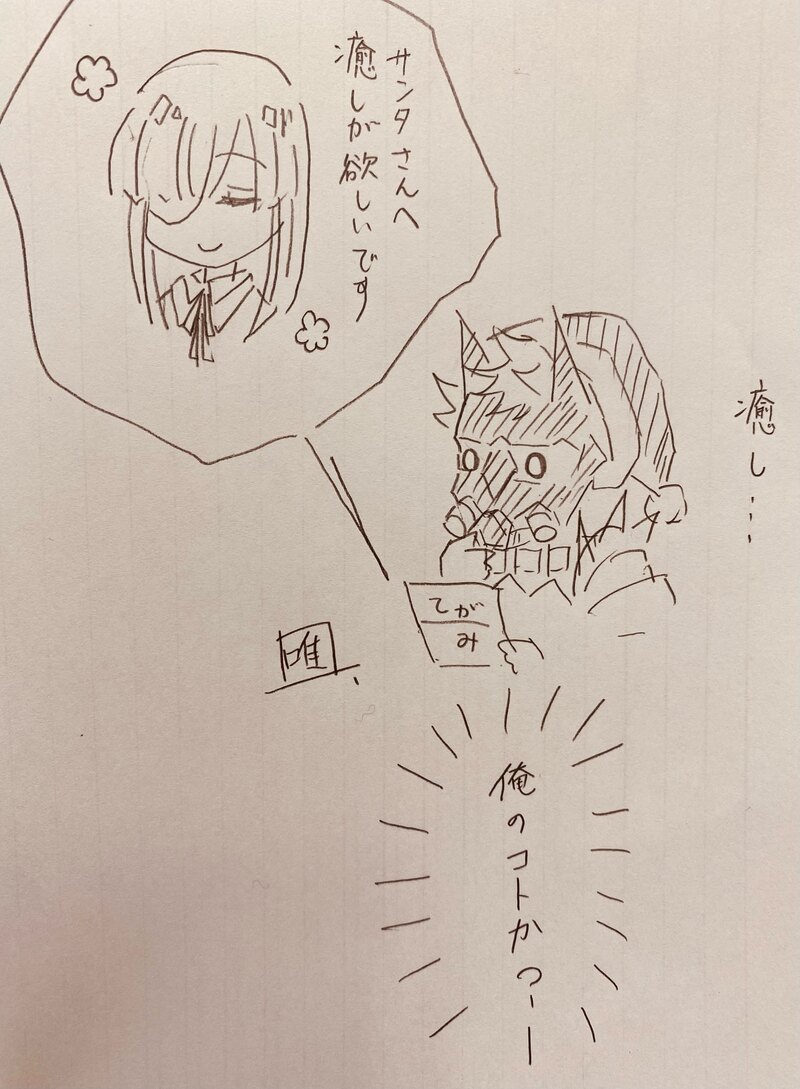 サンタさんへ
癒しが欲しいです
癒し…
てがみ
唯
俺のコトか?ー